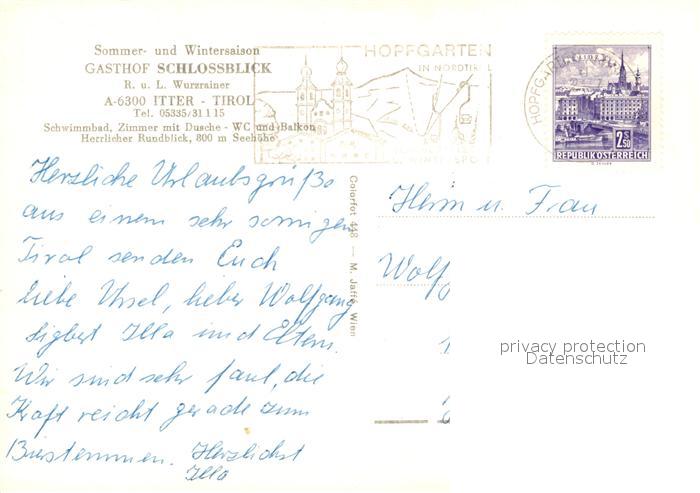 Sommer- und Wintersaison
GASTHOF SCHLOSSBLICK
R. u. L. Wurzrainer
A-6300 ITTER - TIROL
Tel. 05335/31115
Schwimmbad, Zimmer mit Dusche - WC und Balkon
Herrlicher Rundblick, 800 m Seehöhe
HOPFGARTEN
IN NORDTIROL
WINTERSPO
HOPFGARTEN
2 S 50
REPUBLIK ÖSTERREICH
Herzliche Urlaubsgrüße
aus einem sehr sonnigen
Tirol senden Euch
liebe Ursel, lieber Wolfgang
Sigbert Illa und Eltern.
Wir sind sehr faul, die
Kraft reicht gerade zum
Biestemmen. Herzlichst
Illa
Colorfot 448 — M. Jaffé, Wien
Herrn u. Frau
Wolfg
privacy protection
Datenschutz